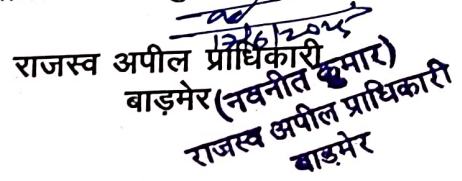 17/6/2025
राजस्व अपील प्राधिकारी
बाड़मेर (नवनीत कुमार)
राजस्व अपील प्राधिकारी
बाड़मेर